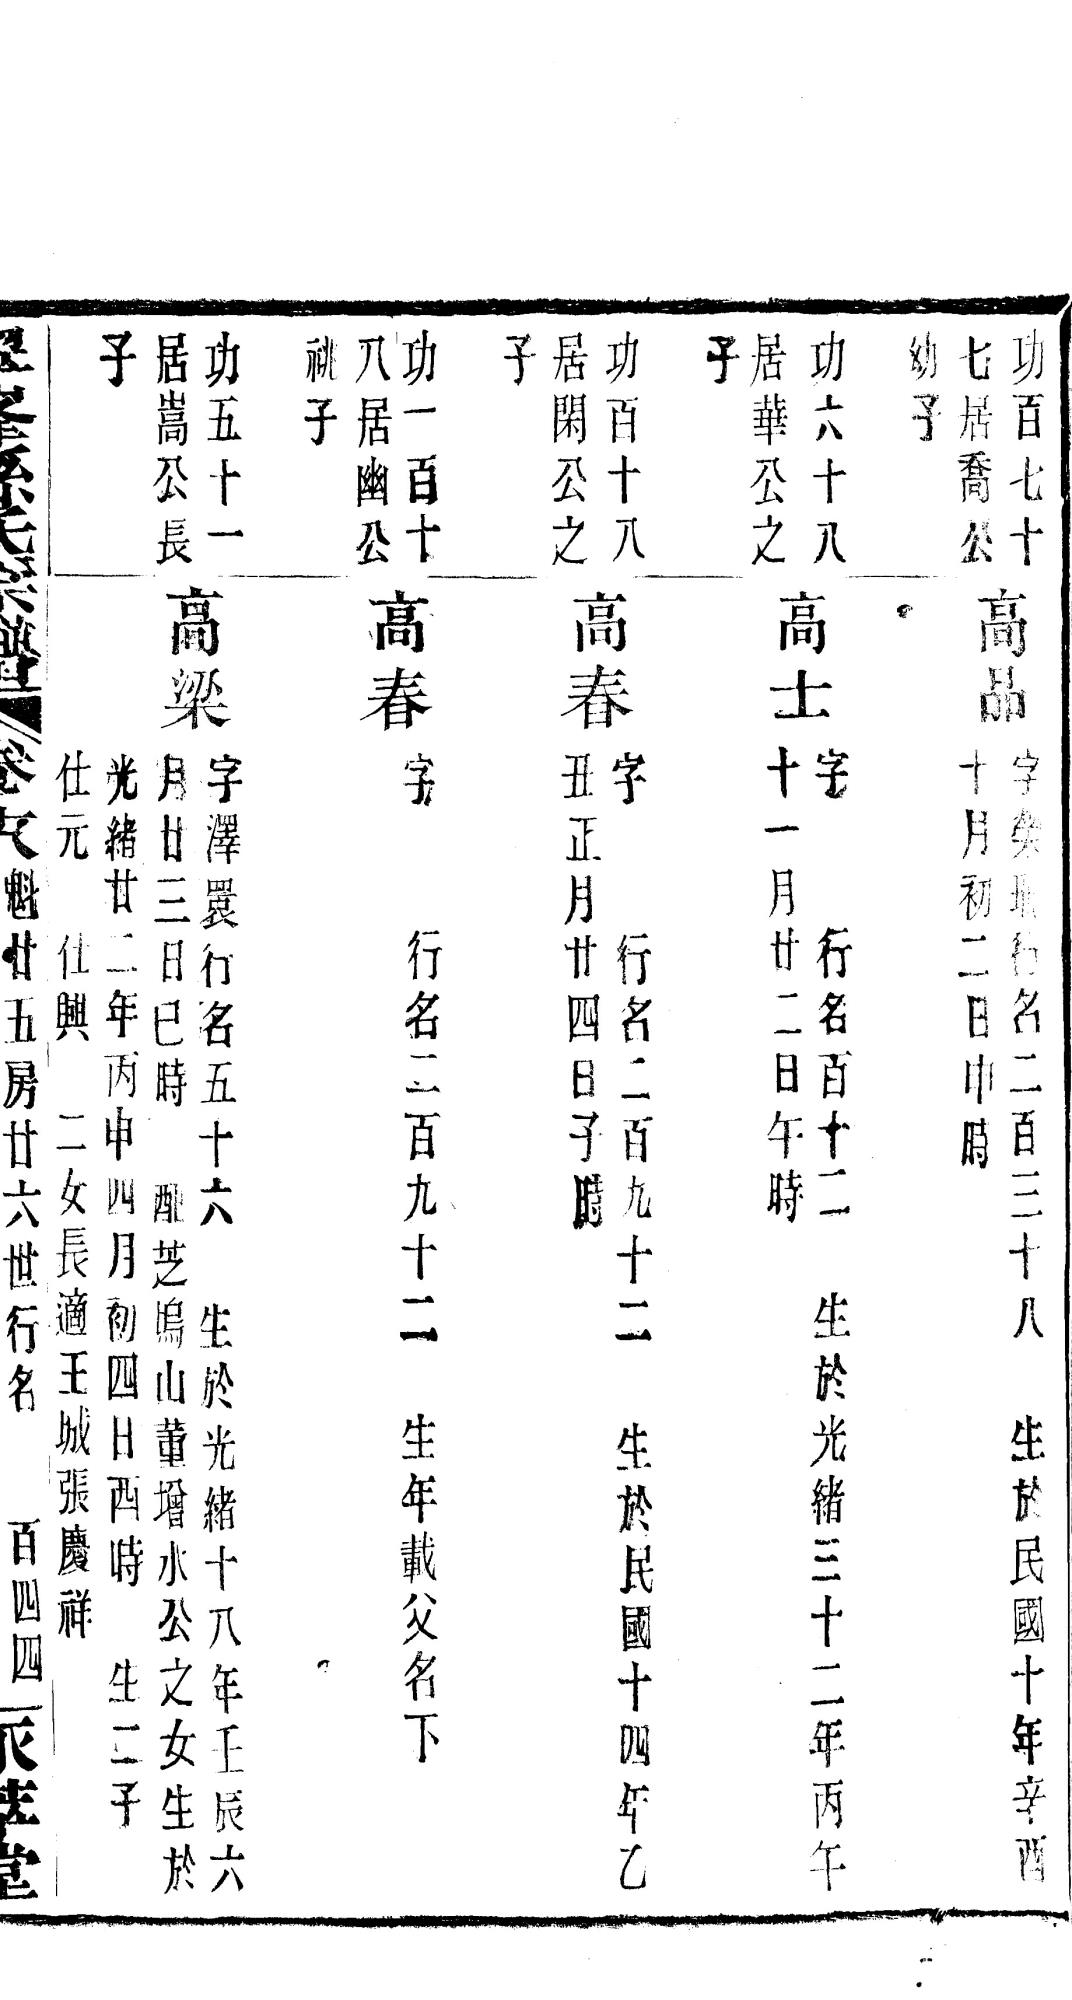 功百七十
七居喬公
幼子
高品
字 行名二百三十八 生於民國十年辛酉
十月初二日申時
功六十八
居華公之
子
高士
字 行名百十二 生於光緒三十二年丙午
十一月廿二日午時
功百十八
居閑公之
子
高春
字 行名二百九十二 生於民國十四年乙
丑正月廿四日子時
功一百十
八居幽公
祧子
高春
字 行名二百九十二 生年載父名下
功五十一
居嵩公長
子
高梁
字澤睘行名五十六 生於光緒十八年壬辰六
月廿三日巳時 配芝塢山董增水公之女生於
光緒廿二年丙申四月初四日酉時 生二子
仕元 仕興 二女長適王城張慶祥
峯孫氏宗譜 卷 魁廿五房廿六世行名 百四四 堂